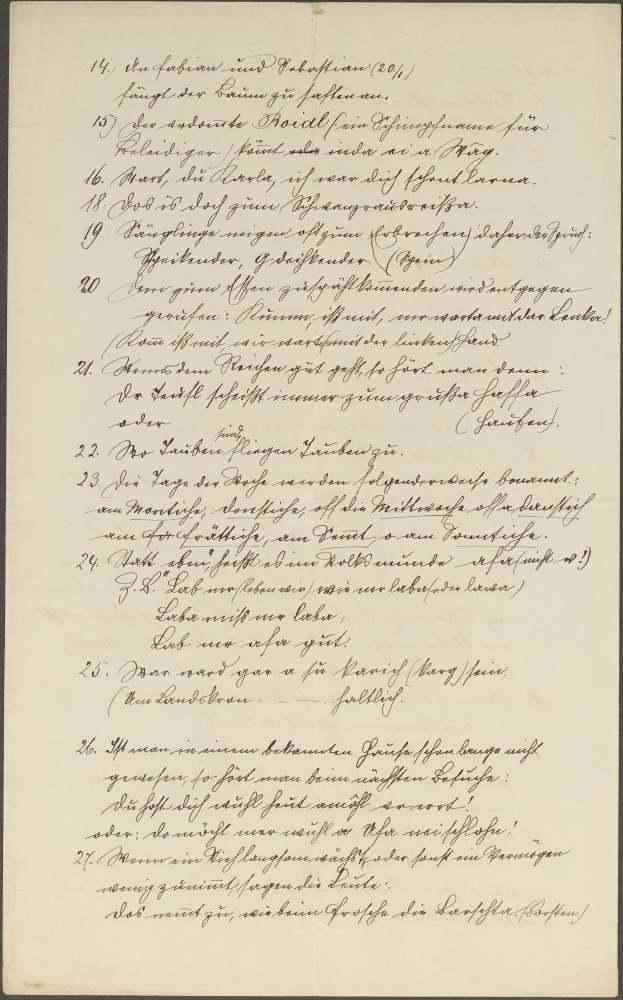 14.) An Fabian und Sebastian (20/1)
fängt der Baum zu saften an.
15) Der verdomte Roidl (ein Schimpfname für
Beleidiger) kömt oder inda ei a Wäg.
16. Wart, du Karla, ich war dich schont larna.
18. Dos is doch zum Schwanzrausreißa.
19 Säuglinge neigen oft zum Erbrechen, daher der Spruch:
Speikender, Gdeihkender. (Spein)
20 Dem zum Essen zuspät kommenden wird entgegen
gerufen: Kumm, iß mit, mr warta mit dar Lenka!
(Kom iß mit, wir warten mit der linken) Hand.
21. Wenns dem Reichen gut geht, so hört man denn:
Dr Teufl scheißt immer zum grußa Haffa
oder (Haufen).
22. Wo Tauben sind, fliegen Tauben zu.
23. Die Tage der Woche werden folgenderweise benannt:
am Montiche, Donstiche, off die Mittwoche, off a Danstich
am Frättiche, am Sennt, o am Sonntiche.
24. Statt "eben", heißt es im Volksmunde afa (nicht w!)
Z. B. "Lab mr (leben wir) wie mr laba (oder lawa)
Laba miß mr laba,
Lab mr afa gut.
25. War ward gar a su karich (karg) sein.
(Am Landskron - - — haltlich.
26. Ist man in einem bekannten Hause schon lange nicht
gewesen, so hört man beim nächsten Besuche:
Du host dich wuhl heut amöhl vereert!
oder: do möcht mer wuhl a Ufa neischlohn!
27. Wenn ein Vieh langsam wächst, oder sonst ein Vermögen
wenig zunimmt, sagen die Leute:
Dos nemt zu, wie beim Frosche die Barschta. (Borsten)